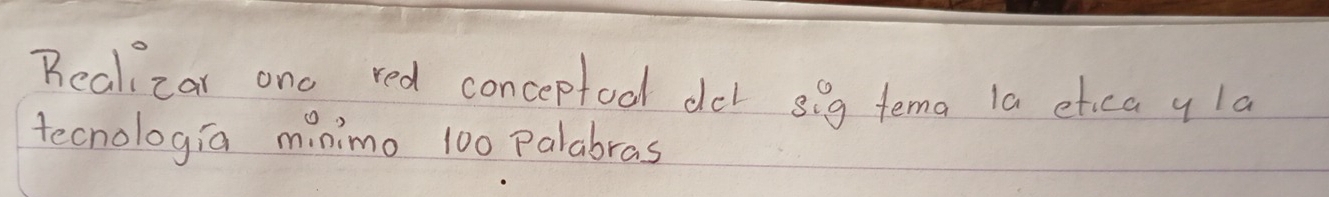 Realizar una red conceptual del sig tema la etica y la
tecnología minimo 100 Palabras